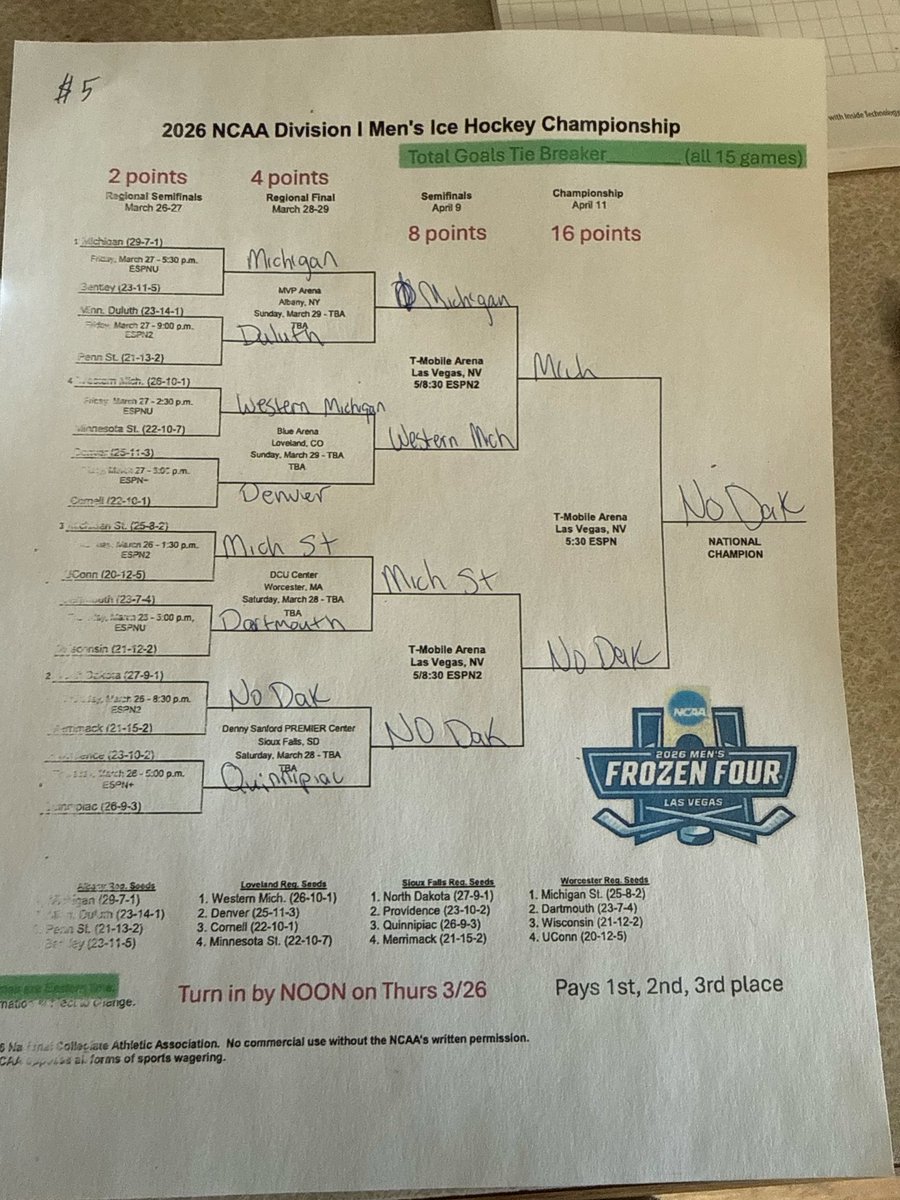 $5
with Inside Technology
2026 NCAA Division I Men's Ice Hockey Championship
Total Goals Tie Breaker_______ (all 15 games)
2 points
Regional Semifinals
March 26-27
4 points
Regional Final
March 28-29
Semifinals
April 9
8 points
Championship
April 11
16 points
1 Michigan (29-7-1)
Friday, March 27 - 5:30 p.m.
ESPNU
Bentley (23-11-5)
Michigan
MVP Arena
Albany, NY
Sunday, March 29 - TBA
TBA
Minn. Duluth (23-14-1)
Friday, March 27 - 9:00 p.m.
ESPN2
Penn St. (21-13-2)
Duluth
Michigan
4 Western Mich. (26-10-1)
Friday, March 27 - 2:30 p.m.
ESPNU
Minnesota St. (22-10-7)
Western Michigan
Blue Arena
Loveland, CO
Sunday, March 29 - TBA
TBA
Denver (25-11-3)
March 27 -
ESPN+
Cornell (22-10-1)
Denver
Western Mich
T-Mobile Arena
Las Vegas, NV
5/8:30 ESPN2
Mich
3 Michigan St. (25-8-2)
March 26 - 1:30 p.m.
ESPN2
UConn (20-12-5)
Mich St
DCU Center
Worcester, MA
Saturday, March 28 - TBA
TBA
Dartmouth (23-7-4)
5:00 p.m.
ESPNU
Wisconsin (21-12-2)
Dartmouth
Mich St
2 Dakota (27-9-1)
March 26 - 8:30 p.m.
ESPN2
Merrimack (21-15-2)
No Dak
Denny Sanford PREMIER Center
Sioux Falls, SD
Saturday, March 28 - TBA
TBA
Providence (23-10-2)
March 26 - 5:00 p.m.
ESPN+
Quinnipiac (26-9-3)
Quinnipiac
No Dak
T-Mobile Arena
Las Vegas, NV
5/8:30 ESPN2
No Dak
T-Mobile Arena
Las Vegas, NV
5:30 ESPN
No Dak
NATIONAL
CHAMPION
NCAA
2026 MEN'S
FROZEN FOUR
LAS VEGAS
Albany Reg. Seeds
Michigan (29-7-1)
Duluth (23-14-1)
Penn St. (21-13-2)
Bentley (23-11-5)
Loveland Reg. Seeds
1. Western Mich. (26-10-1)
2. Denver (25-11-3)
3. Cornell (22-10-1)
4. Minnesota St. (22-10-7)
Sioux Falls Reg. Seeds
1. North Dakota (27-9-1)
2. Providence (23-10-2)
3. Quinnipiac (26-9-3)
4. Merrimack (21-15-2)
Worcester Reg. Seeds
1. Michigan St. (25-8-2)
2. Dartmouth (23-7-4)
3. Wisconsin (21-12-2)
4. UConn (20-12-5)
are Eastern time.
change.
Turn in by NOON on Thurs 3/26
Pays 1st, 2nd, 3rd place
Collegiate Athletic Association. No commercial use without the NCAA's written permission.
all forms of sports wagering.